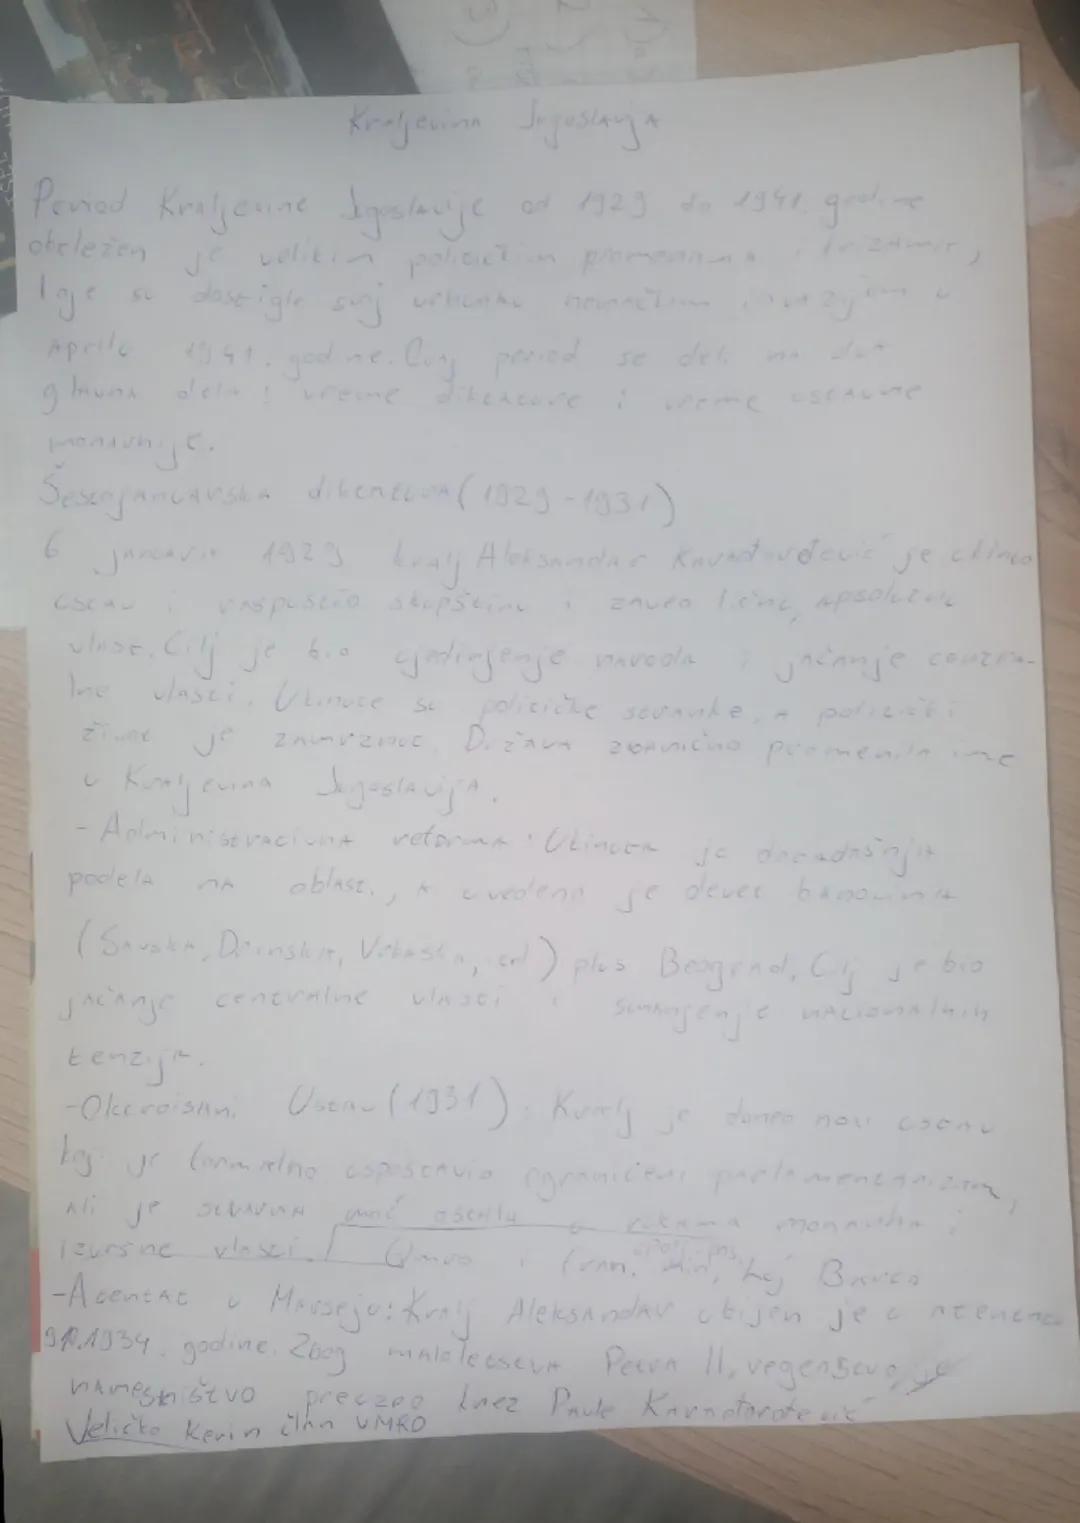 Kraljevina Jugoslavija
Period Kraljevine Jugoslavije od 1929 do 1941. godine
obeležen je velikim političkim promenama i krizama,
koje su dostigle svoj vrhunac nemačkom invazijom u
Aprilu 1941. godine. Ovaj period se deli na dva
glavna dela: vreme diktature i vreme ustavne
monarhije.
Šestojanuarska diktatura (1929-1931)
6 januara 1929 kralj Aleksandar Karađorđević je ukinuo
ustav i raspustio skupštinu i zaveo ličnu, apsolutnu
vlast. Cilj je bio ujedinjenje naroda i jačanje centra-
lne vlasti. Ukinute su političke stranke, a politički
život je zamrznut. Država zvanično promenila ime
u Kraljevina Jugoslavija.
- Administrativna reforma: Ukinuta je dotadašnja
podela na oblasti, a uvedeno je devet banovina
(Savska, Drinska, Vrbaska, itd) plus Beograd. Cilj je bio
jačanje centralne vlasti i smanjenje nacionalnih
tenzija.
-Oktroisani Ustav (1931): Kralj je doneo novi ustav
koji je formalno uspostavio ograničeni parlamentarizam,
ali je stvarna moć ostala u rukama monarha i
izvršne vlasti. i fran. min. Luj Bartu
-Atentat u Marseju: Kralj Aleksandar ubijen je u atentatu
9.10.1934. godine. Zbog maloletstva Petra II, regenstvo je
namesništvo preuzeo knez Pavle Karađorđević
Veličko Kerin član VMRO